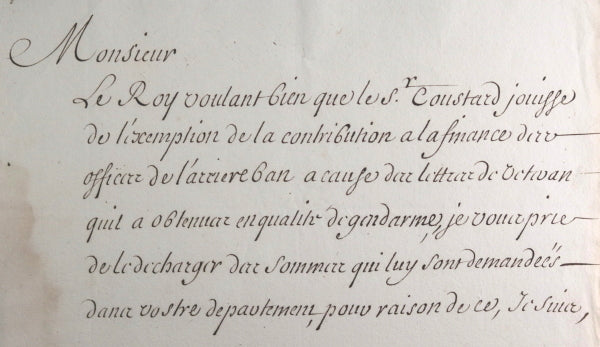 Monsieur
Le Roy voulant bien que le S.r Coustard jouisse
de l'exemption de la contribution a la finance des
offices de l'arriere ban a cause des lettres de veteran
quil a obtenues en qualité de gendarme, je vous prie
de le decharger des sommes qui luy sont demandeés
dans vostre departement, pour raison de ce, Je suis,